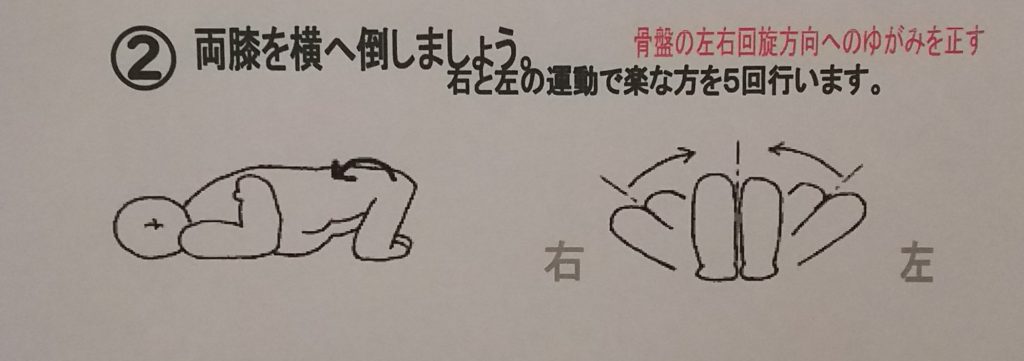 ② 両膝を横へ倒しましょう。
骨盤の左右回旋方向へのゆがみを正す
右と左の運動で楽な方を5回行います。
右
左